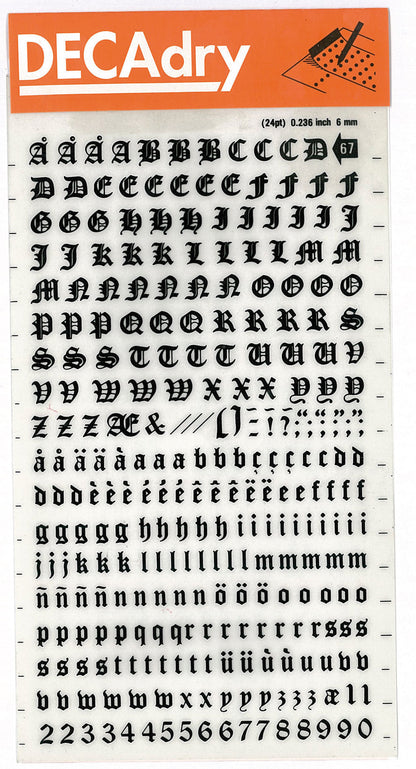 DECAdry
(24pt) 0.236 inch 6 mm
Å Å Å A B B B C C C D 67
D D E E E E E E F F F F
G G G H H H I I I I I J
J J K K K L L L L L M M
M N N N N N N O O O O
P P P P Q Q R R R R R S
S S S S T T T T U U U U V
V V W W W W X X X Y Y Y
Z Z Z Æ &
å å ä ä à a a a b b b ç ç c c c d d
d d d è è è é é é ê ê ê ë ë e e e f f f f
g g g g g h h h h h i i i i i i i i i i
j j j k k k l l l l l l l l m m m m m
ñ ñ ñ ñ n n n n n ö ö ö o o o o o
p p p p p q q q r r r r r r r r s s s
s s s s t t t t t t t ü ü ù ù u u u v v
v v w w w w x x y y y z z z æ
2 2 3 3 4 4 5 5 6 6 7 7 8 8 9 9 0